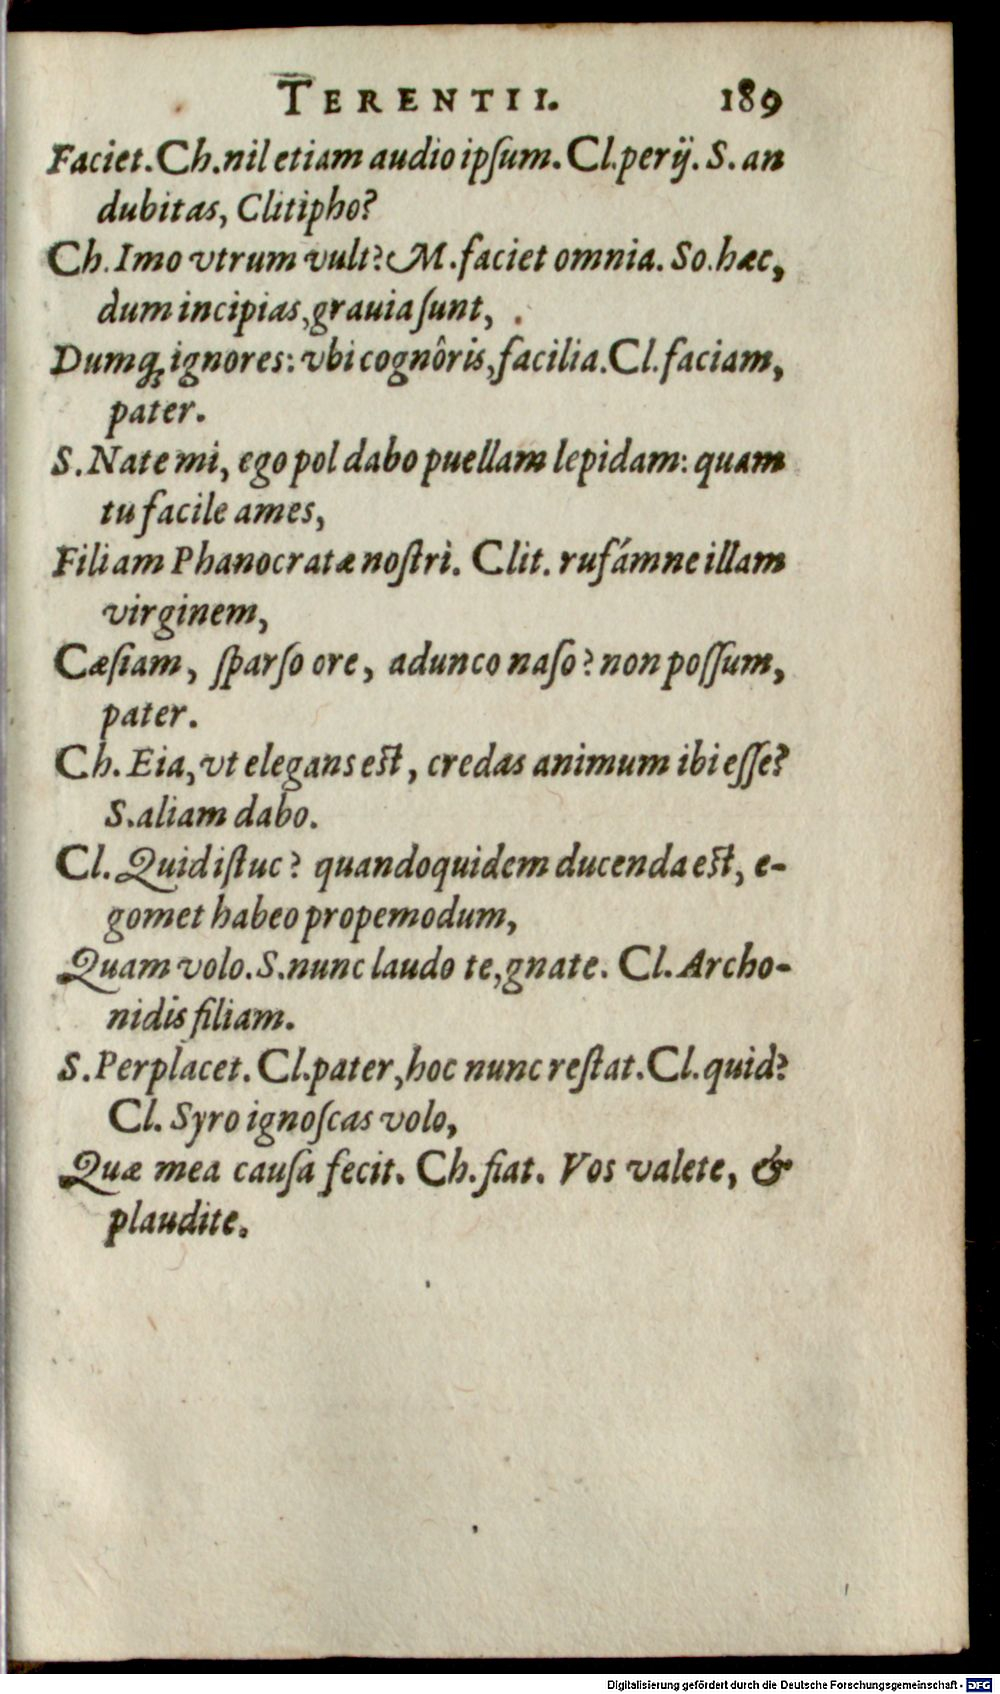 TERENTII. 189
Faciet. Ch. nil etiam audio ipſum. Cl. perij. S. an
dubitas, Clitipho?
Ch. Imo vtrum vult? M. faciet omnia. So. hæc,
dum incipias, grauia ſunt,
Dumq́; ignores: vbi cognôris, facilia. Cl. faciam,
pater.
S. Nate mi, ego pol dabo puellam lepidam: quam
tu facile ames,
Filiam Phanocratæ noſtri. Clit. rufámne illam
virginem,
Cæſiam, ſparſo ore, adunco naſo? non poſſum,
pater.
Ch. Eia, vt elegans eſt, credas animum ibi eſſe?
S. aliam dabo.
Cl. Quid iſtuc? quandoquidem ducenda eſt, e-
gomet habeo propemodum,
Quam volo. S. nunc laudo te, gnate. Cl. Archo-
nidis filiam.
S. Perplacet. Cl. pater, hoc nunc reſtat. Cl. quid?
Cl. Syro ignoſcas volo,
Quæ mea cauſa fecit. Ch. fiat. Vos valete, &
plaudite.
Digitalisierung gefördert durch die Deutsche Forschungsgemeinschaft - DFG